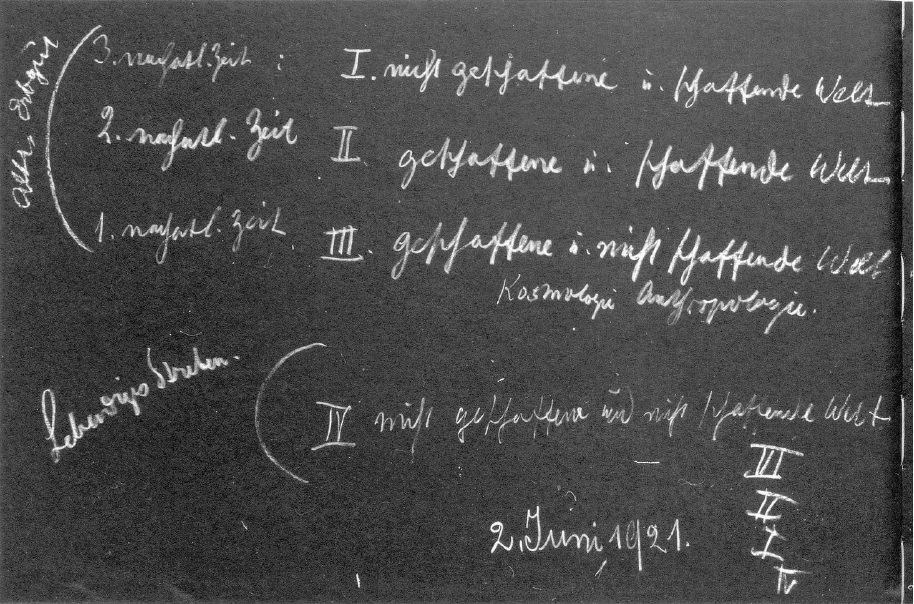 Altes Erbgut
3. nachatl. Zeit : I. nicht geschaffene u. schaffende Welt
2. nachatl. Zeit II geschaffene u. schaffende Welt
1. nachatl. Zeit. III. geschaffene u. nicht schaffende Welt
Kosmologie Anthropologie.
Lebendiges Streben.
IV nicht geschaffene und nicht schaffende Welt
III
II
I
IV
2. Juni 1921.